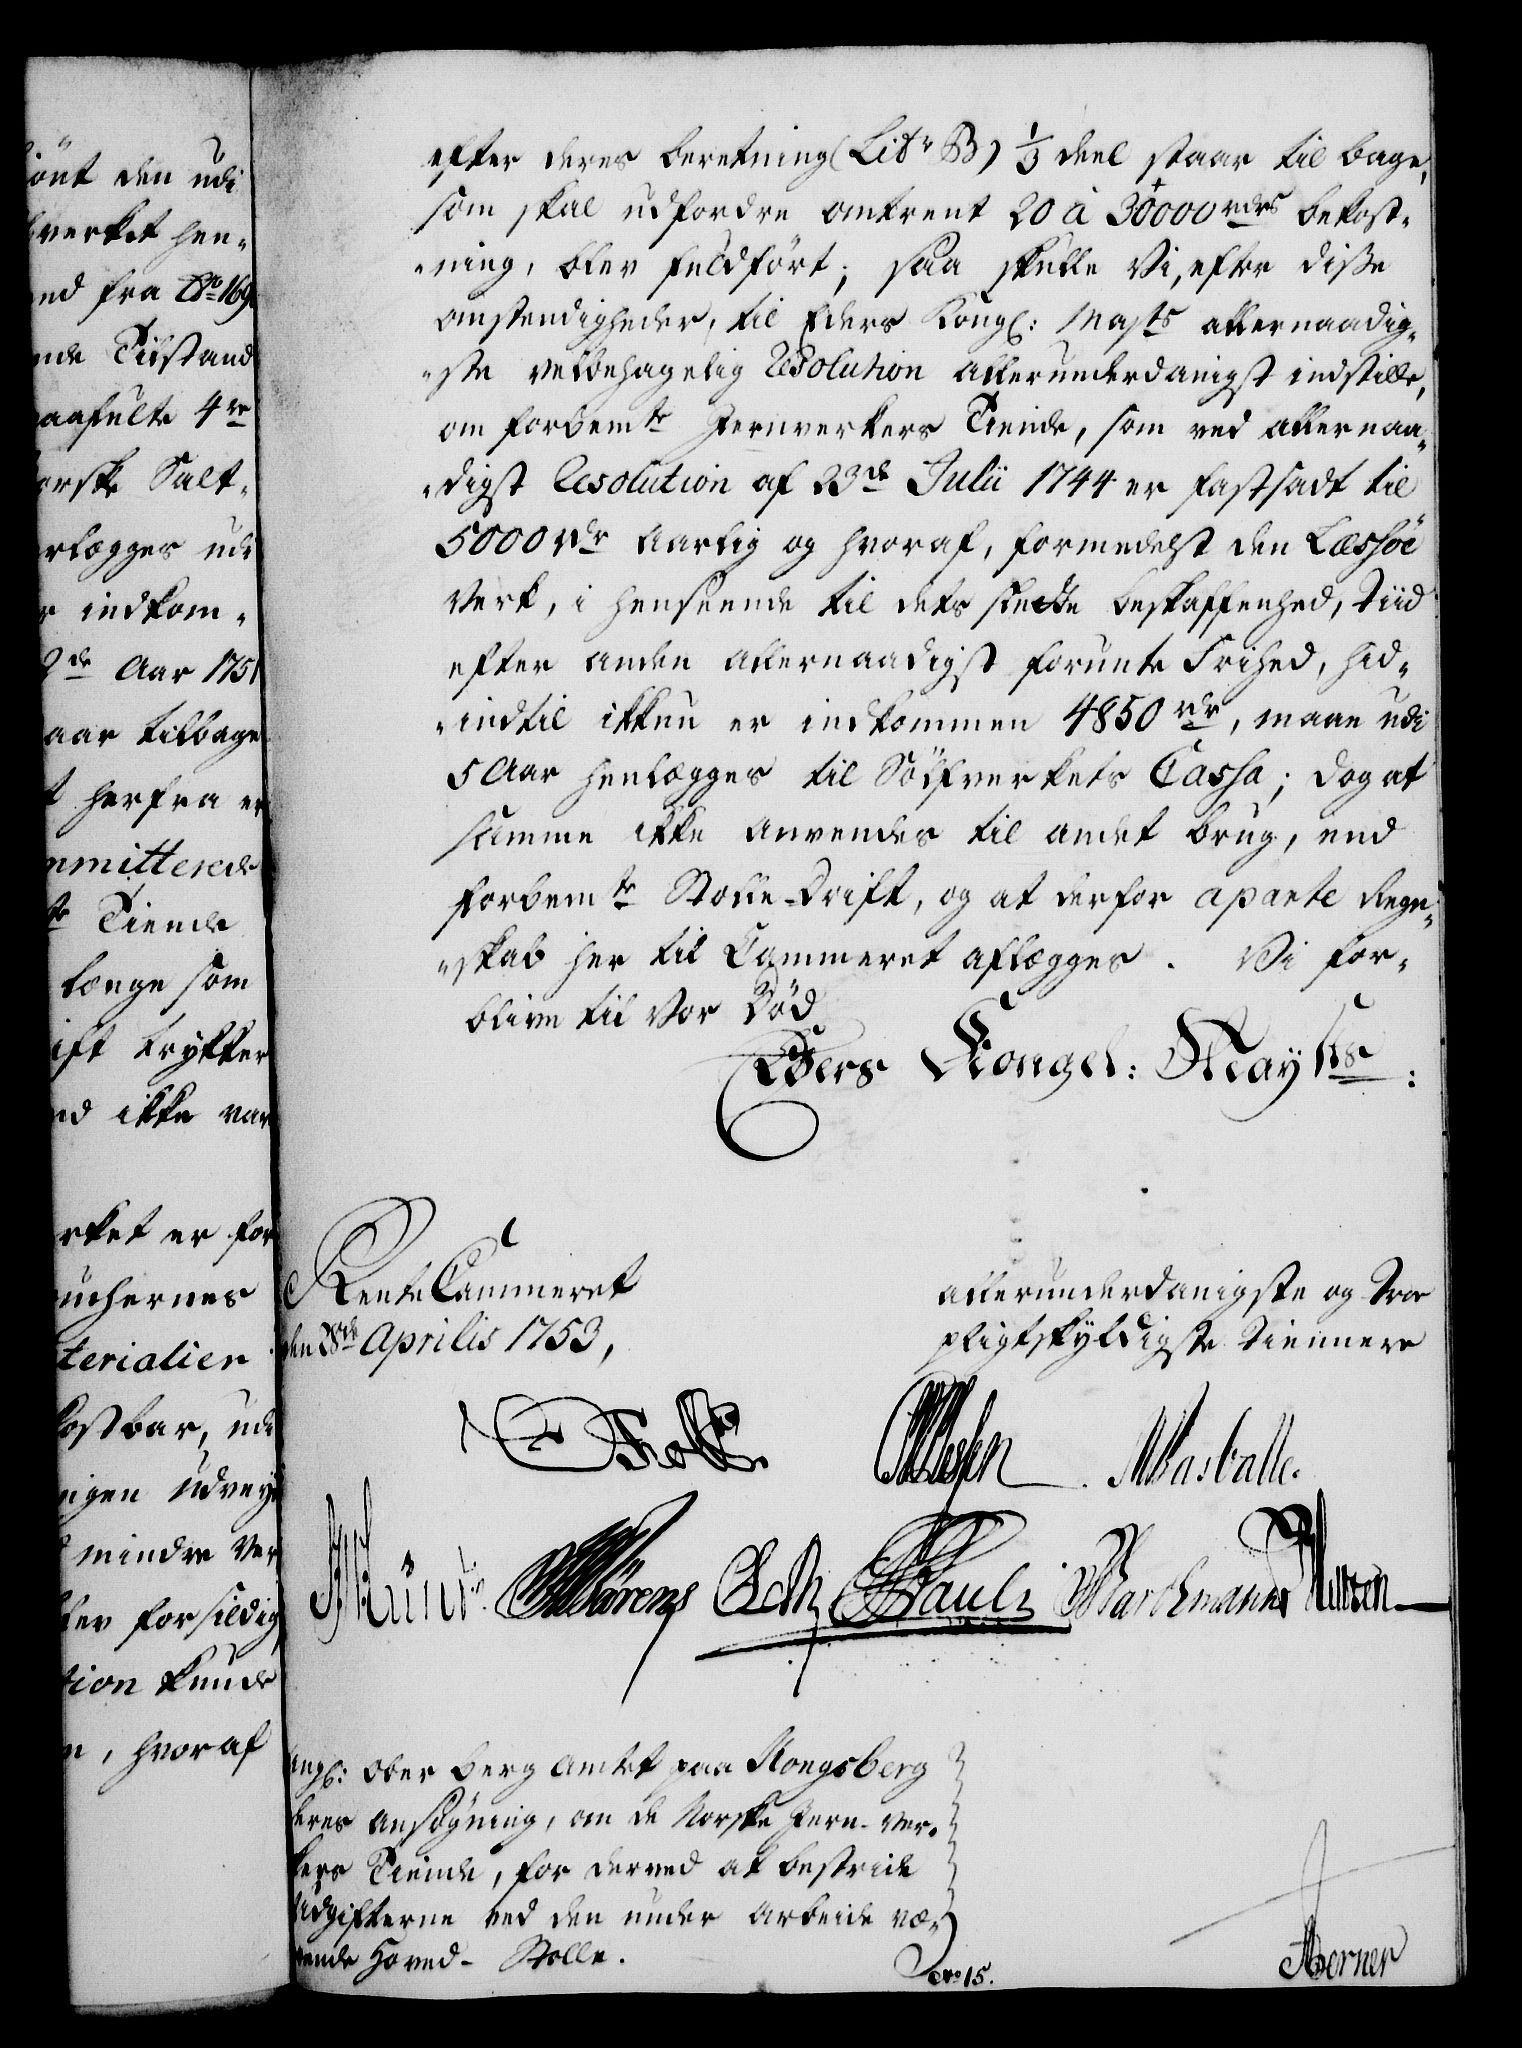 iönt den udi
verket hen-
nd fra Ao 169
nde Tilstand
aafulte 4re
orske Sølf-
rlægges udi
r indkom-
2de Aar 1751
aar tilbage
t herfra er
mmitterede
te Tiende
længe som
ift trykker
nd ikke var
rket er for
uchernes
terialier
kostbar, udi
ingen udveye
mindre Ver
blev forsildig
tion kunde
n, hvoraf
efter deres beretning (Litr B) 1/3 deel staar tilbage,
som skal udfordre omtrent 20 à 30000 rdrs bekost-
-ning, blev fuldført; saa skulle Vi, efter disse
omstendigheder, til Eders Kongl: Mayts allernaadig-
-ste velbehagelig Resolution allerunderdanigst indstille,
om forbemte Jernverkers Tiende, som ved allernaa-
-digst Resolution af 23de Julii 1744 er fastsadt til
5000 rdr aarlig og hvoraf, formedelst den Læssöe
Verk, i henseende til dets slette beskaffenhed, Tiid
efter anden allernaadigst forunte Frihed, hid-
-indtil ikkun er indkommen 4850 rdr, maae udi
5 Aar henlægges til Sølfverkets Cassa; dog at
samme ikke anvendes til andet brug, end
forbemte Stolle-Drift, og at derfor aparte Regn-
-skab her til Cammeret aflægges. Vi for-
blive til vor Död
Eders Kongel: Mayts:
RenteCammeret
den 28de Aprilis 1753,
allerunderdanigste og troe
pligtskyldigste tiennere
Holst
Masballe.
Wörens Pauli Barchmann
ongl: Ober Berg Amtet paa Kongsberg
deres ansøgning, om de Norske Jern-Ver-
kers Tiende, for derved at bestride
Udgifterne ved den under arbeide væ-
rende Hoved-Stolle.
No 15.
Berner